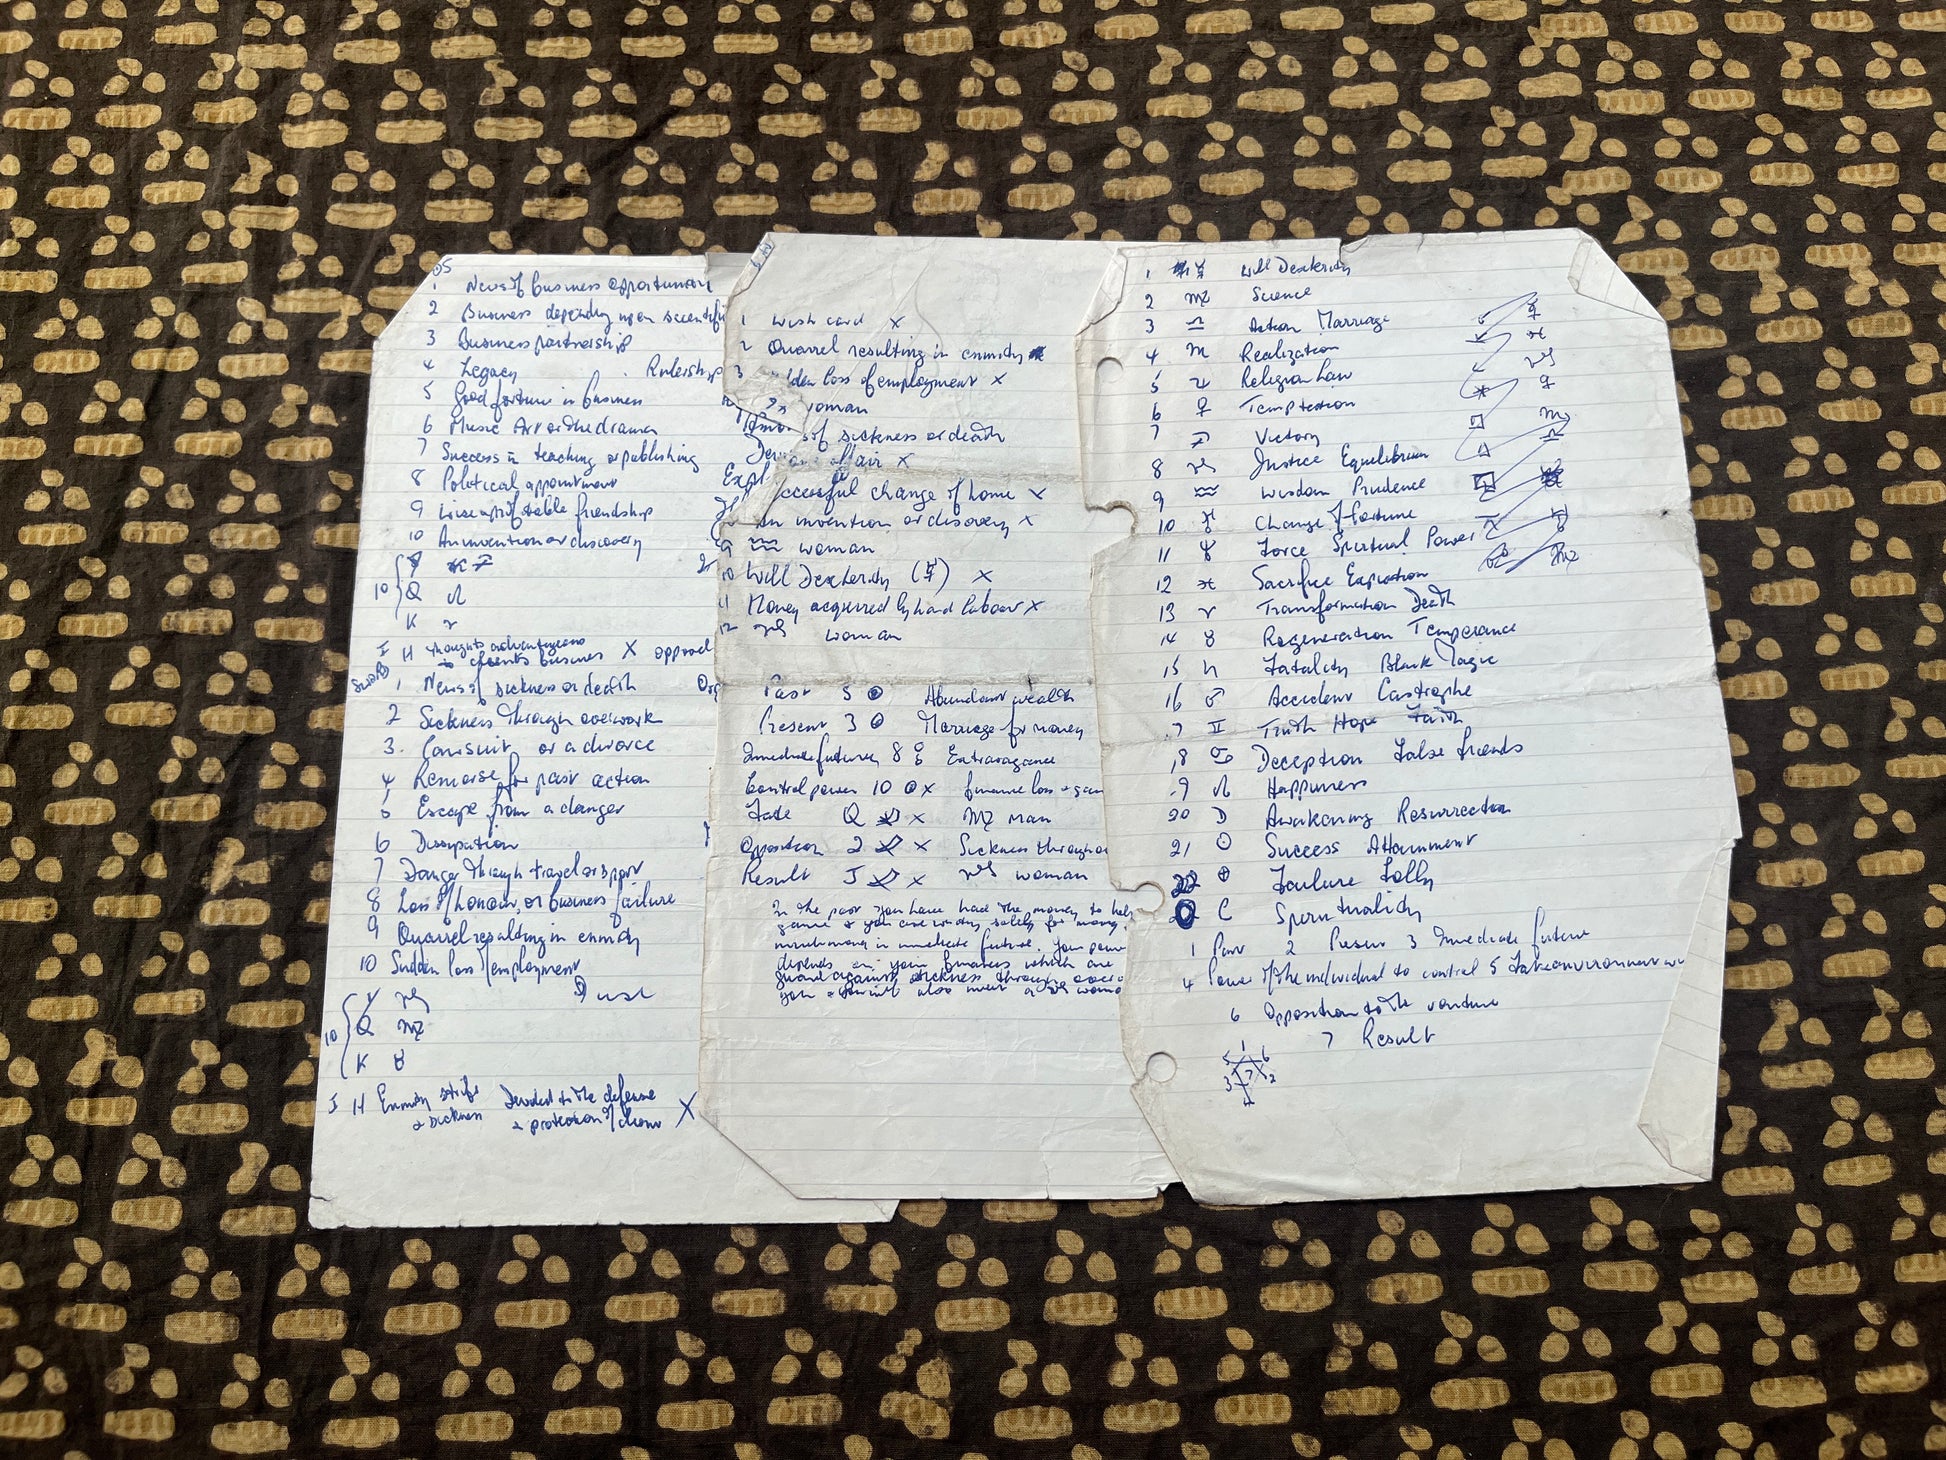 1 News of business opportunity
2 Business depending upon scientific
3 Business partnership
4 Legacy . Rulership
5 Good fortune in business
6 Music Art or the drama
7 Success in teaching or publishing
8 Political appointment
9 Wise profitable friendship
10 An invention or discovery
♐
10 Q ♌
K ♈
J H thoughts advantageous
to clients business X
Swords
1 News of sickness or death
2 Sickness through overwork
3. Lawsuit or a divorce
4 Remorse for past action
5 Escape from a danger
6 Dissipation
7 Danger through travel or sport
8 Loss of honour, or business failure
9 Quarrel resulting in enmity
10 Sudden loss of employment
♑
10 Q ♍
K ♉
J H Enmity strife Devoted to the defense
& sickness & protection of X
1 wish card X
2 Quarrel resulting in enmity
3 loss of employment X
woman
of sickness or death
affair X
change of home X
8 An invention or discovery X
9 ♒ woman
10 Will Dexterity (☿) X
11 Money acquired by hard labour X
12 ♑ woman
Past 5 Abundant wealth
Present 3 Marriage for money
Immediate future 8 Extravagance
Control power 10 X finance loss +
Fate Q X ♍ man
Opposition 2 X Sickness through
Result J X ♑ woman
In the past you have had the money to
solely for money.
in immediate future. Your power
depends on your finances which are
guard against sickness through
you also meet a ♑
1 ☿ Will Dexterity
2 ♍ Science
3 ♎ Action Marriage
4 ♏ Realization
5 ♃ Religion Law
6 ♀ Temptation
7 ♐ Victory
8 ♑ Justice Equilibrium
9 ♒ Wisdom Prudence
10 ♅ Change of fortune
11 ♆ Force Spiritual Power
12 ♓ Sacrifice Expiation
13 ♈ Transformation Death
14 ♉ Regeneration Temperance
15 ♄ Fatality Black Magic
16 ♂ Accident Catastrophe
17 ♊ Truth Hope Faith
18 ♋ Deception False friends
19 ♌ Happiness
20 ☽ Awakening Resurrection
21 ☉ Success Attainment
22 ⊕ Failure Folly
Spirituality
1 Past 2 Present 3 Immediate future
4 Power of the individual to control 5 Fate environment
6 Opposition to the venture
7 Result
1
5 6
3 7 2
4